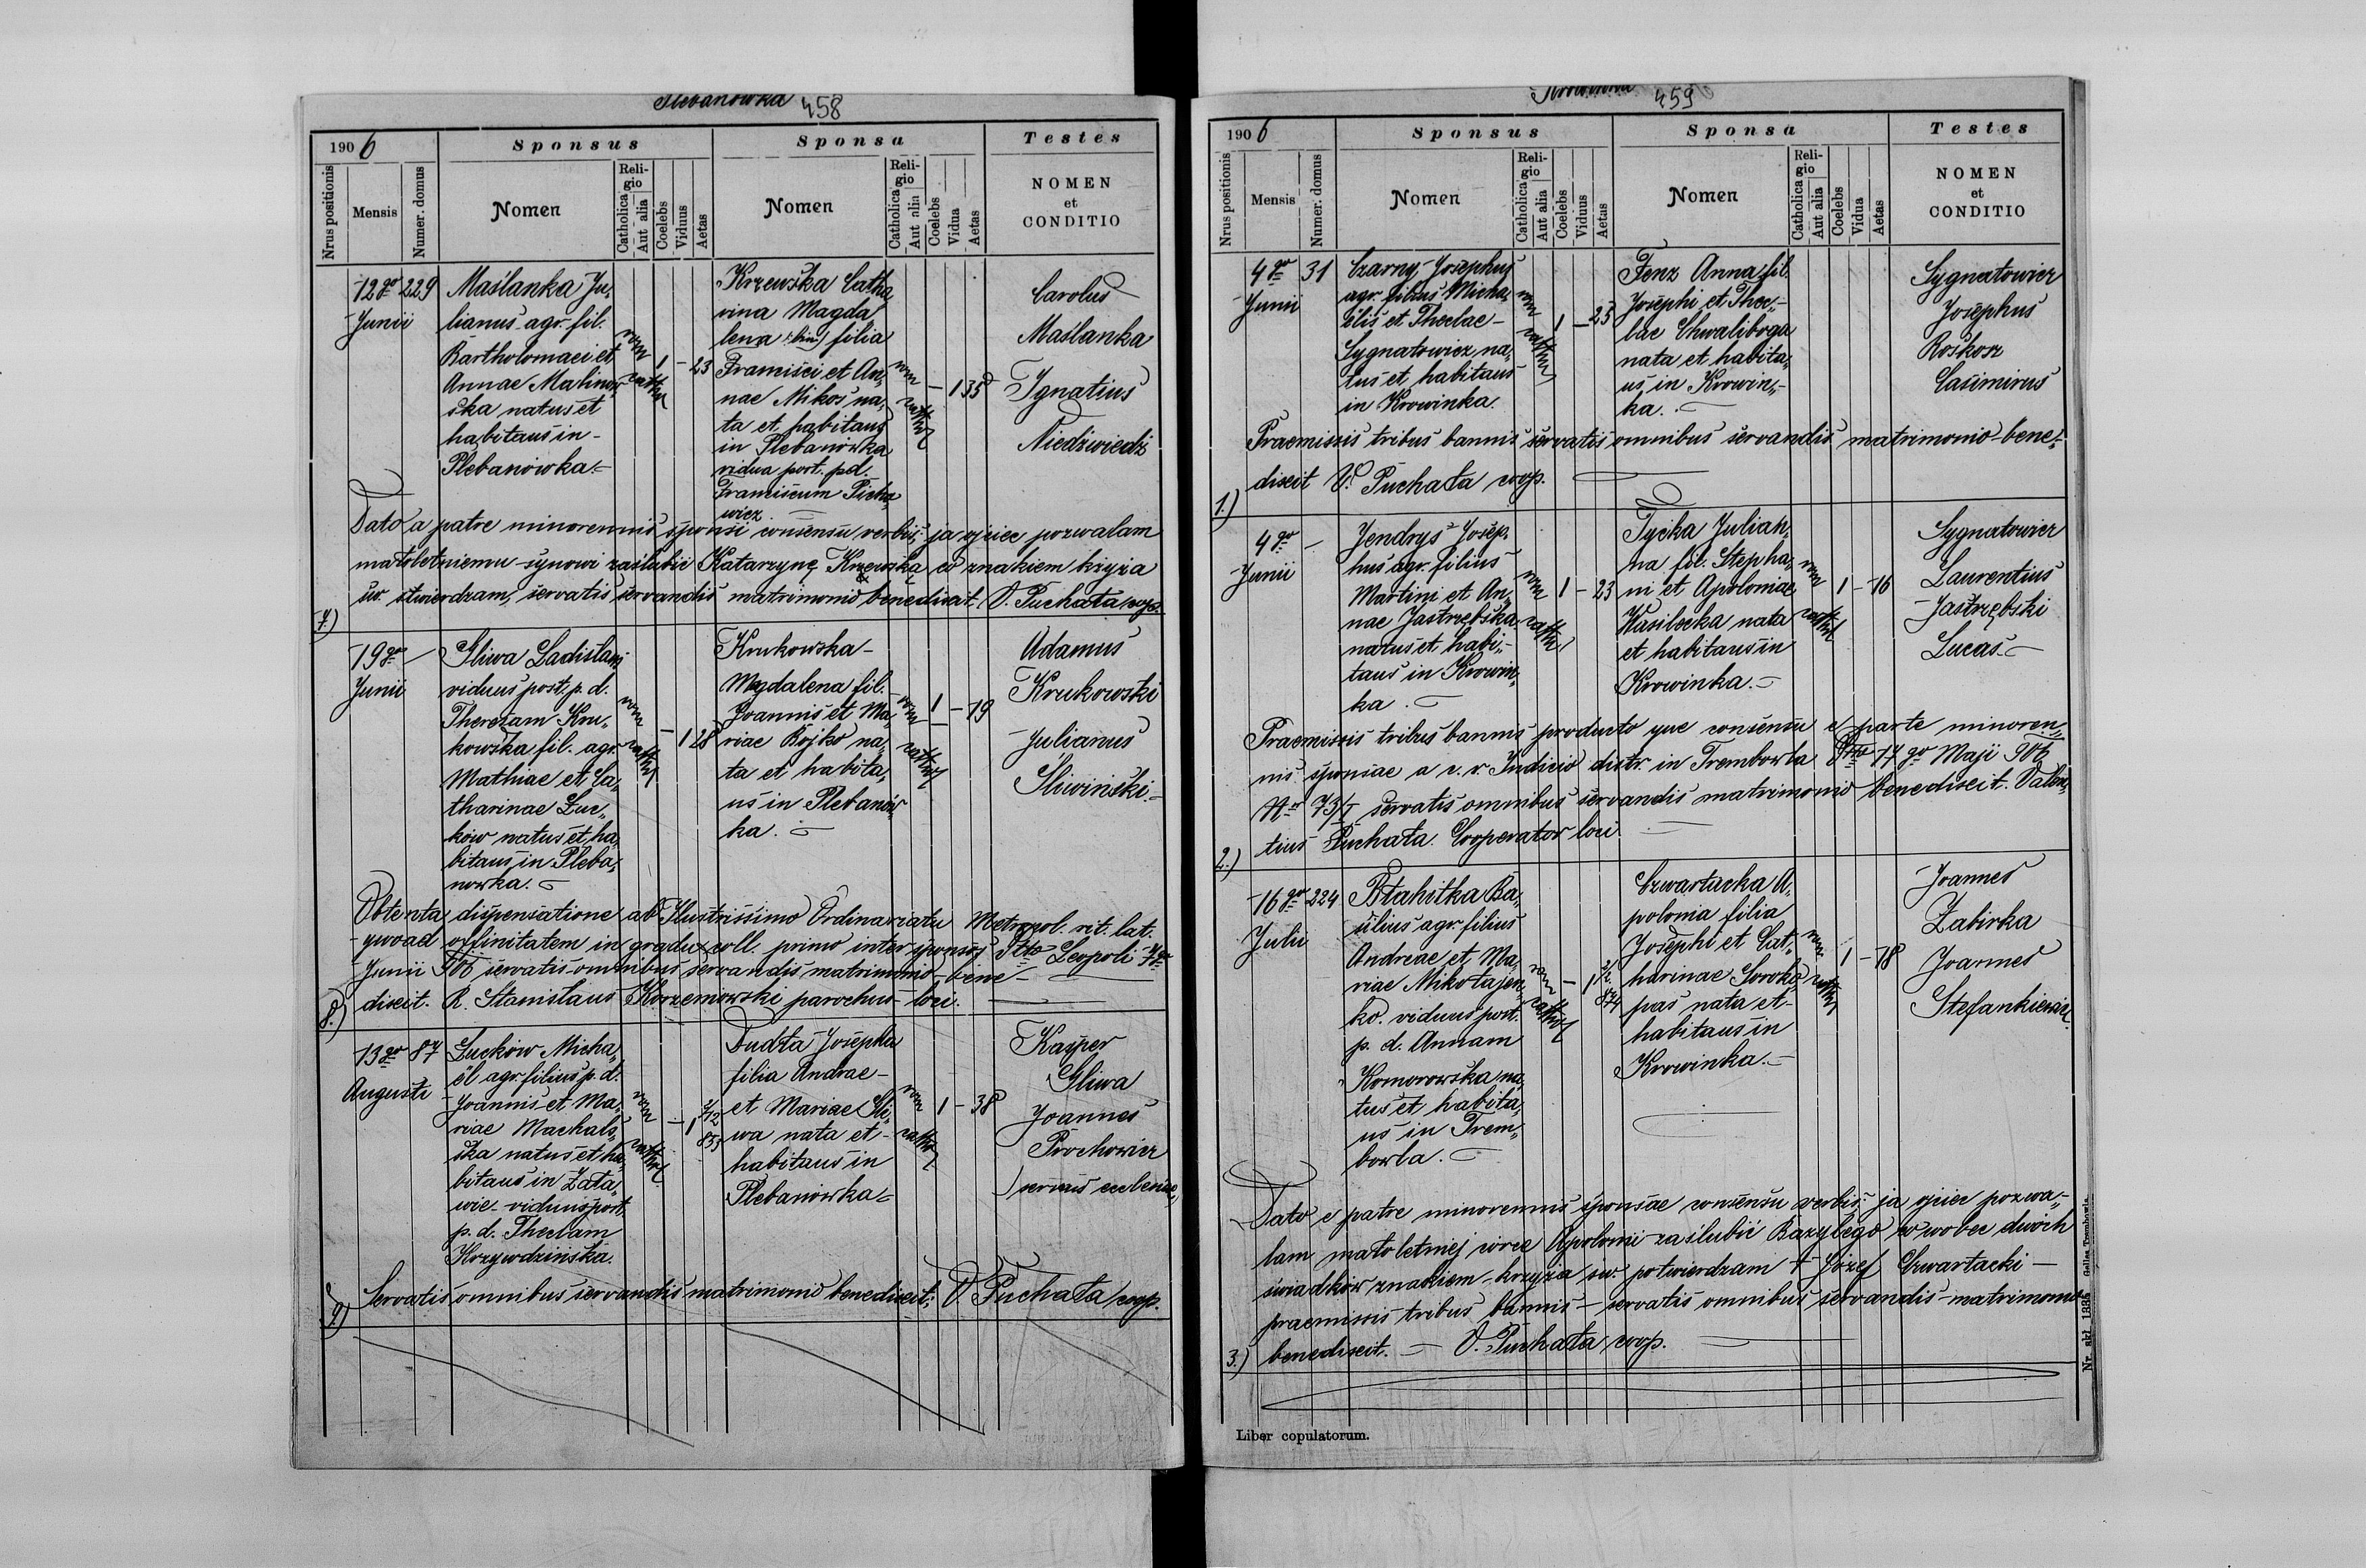 Plebanówka 458
1906
Sponsus
Sponsa
Testes
Nrus positionis
Mensis
Numer. domus
Nomen
Religio
Catholica
Aut alia
Coelebs
Viduus
Aetas
Nomen
Religio
Catholica
Aut alia
Coelebs
Vidua
Aetas
NOMEN
et
CONDITIO
7.)
12go
Junii
229
Maślanka Ju„
lianus agr. fil.
Bartholomaei et
Annae Malinow„
ska natus et
habitans in
Plebanówka.
rom
cathol
1 – 23
Krzewska Catha„
rina Magda„
lena (bin) filia
Francisci et An„
nae Mikos na„
ta et habitans
in Plebanówka
vidua post. p.d.
Franciscum Picho
wicz
rom
cathol
– 1 35
Carolus
Maślanka
Ignatius
Niedźwiedź
Dato a patre minorennis sponsi consensu verbis: ja ojciec pozwalam
małoletniemu synowi zaślubić Katarzynę Krzewską co znakiem krzyża
św. stwierdzam, servatis servandis matrimonio benedixit. V. Puchała coop.
8.)
19go
Junii
–
Śliwa Ladislaus
viduus post. p. d.
Theresam Kru„
kowska fil. agr.
Mathiae et Ca„
tharinae Łuc„
ków natus et ha„
bitans in Pleba„
nowka.
rom
cathol
– 1 28
Krukowska
Magdalena fil.
Joannis et Ma„
riae Bojko na„
ta et habita„
ns in Plebanów„
ka.
rom
cathol
1 – 19
Adamus
Krukowski
Julianus
Śliwiński.
Obtenta dispensatione ab Illustrissimo Ordinariatu Metropol. rit. lat.
quoad affinitatem in gradu coll. primo inter sponsos dto Leopoli 7go
Junii 906 servatis omnibus servandis matrimonio bene
dixit. R. Stanislaus Korzeniowski parochus loci.
9.)
13go
Augusti
87
Łuckow Micha„
ël agr. filius p. d.
Joannis et Ma„
riae Machals„
ska natus et ha„
bitans in Zała„
wie viduus post.
p. d. Theclam
Krzywdzińska.
rom
cathol
– 1 2/12 853
Dudła Josepha
filia Andrae
et Mariae Śli„
wa nata et
habitans in
Plebanówka
rom
cathol
1 – 38
Kasper
Śliwa
Joannes
Prochowicz
(servus ecclesiae)
Servatis omnibus servandis matrimonio benedixit: V. Puchała coop.
Krowinka 459
1906
Sponsus
Sponsa
Testes
Nrus positionis
Mensis
Numer. domus
Nomen
Religio
Catholica
Aut alia
Coelebs
Viduus
Aetas
Nomen
Religio
Catholica
Aut alia
Coelebs
Vidua
Aetas
NOMEN
et
CONDITIO
1.)
4go
Junii
31
Czarny Josephus
agr. filius Micha„
ëlis et Theclae
Sygnatowicz na„
tus et habitans
in Krowinka.
rom
cathol
1 – 23
Fenz Anna fil.
Josephi et Thec„
lae Chwaliboga
nata et habita„
ns in Krowin„
ka.
Sygnatowicz
Josephus
Roskosz
Casimirus
Praemissis tribus bannis servatis omnibus servandis matrimonio bene„
dixit V. Puchała coop.
2.)
4go
Junii
–
Jendrys Josep„
hus agr. filius
Martini et An„
nae Jastrzębska
natus et habi„
tans in Krowin„
ka.
rom
cathol
1 – 23
Tycka Julian„
na fil. Stepha„
ni et Apoloniae
Wasilecka nata
et habitans in
Krowinka.
rom
cathol
1 – 16
Sygnatowicz
Laurentius
Jastrzębski
Lucas
Praemissis tribus bannis producto que consensu e parte minoren„
nis sponsae a c. r. Judicio distr. in Trembowla dto 17go Maji 906
Nro 73/I servatis omnibus servandis matrimonio benedixit. Valen„
tius Puchała. Cooperator loci
3.)
16go
Julii
224
Ptahitka Ba„
silius agr. filius
Andreae et Ma„
riae Mikołajen„
ko. viduus post.
p. d. Annam
Komorowska na„
tus et habita„
ns in Trem„
bowla.
rom
cathol
– 1 2/12 874
Czwartacka A„
polonia filia
Josephi et Cat„
harinae Soroko„
pas nata et
habitans in
Krowinka.
rom
cathol
1 – 18
Joannes
Zabirka
Joannes
Stefankiewicz.
Dato e patre minorennis sponsae consensu verbis: ja ojciec pozwa„
lam małoletniej córce Apolonii zaślubić Bazylego co wobec dwóch
świadków znakiem krzyża św. potwierdzam + Józef Czwartacki
praemissis tribus bannis servatis omnibus servandis matrimonio
benedixit. V. Puchała coop.
Liber copulatorum.